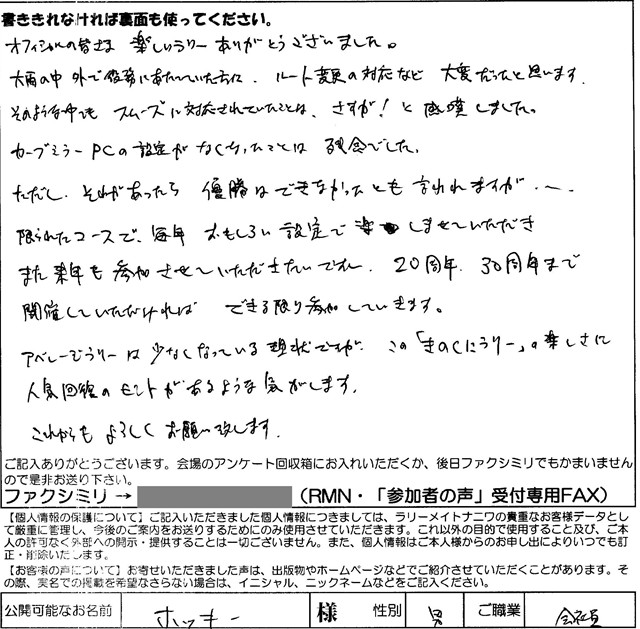 書ききれなければ裏面も使ってください。
オフィシャルの皆さま 楽しいラリーありがとうございました。
大雨の中 外で役務にあたっていた方に、ルート変更の対応など 大変だったと思います。
そのような中でも スムーズに対応されていたことは、さすが!と感嘆しました。
カーブミラーPCの設定がなくなったことは 残念でした。
ただし、それがあったら 優勝はできなかったとも言われますが・・・
限られたコースで、毎年 おもしろい設定で楽しませていただき
また来年も参加させていただきたいですね。20周年、30周年まで
開催していただければ できる限り参加していきます。
アベレージラリーは少なくなっている現状ですが、この「きのくにラリー」の楽しさに
人気回復のヒントがあるような気がします。
これからも よろしく お願い致します。
ご記入ありがとうございます。会場のアンケート回収箱にお入れいただくか、後日ファクシミリでもかまいませんので是非お送り下さい。
ファクシミリ→ (RMN・「参加者の声」受付専用FAX)
【個人情報の保護について】ご記入いただきました個人情報につきましては、ラリーメイトナニワの貴重なお客様データとし
て厳重に管理し、今後のご案内をお送りするためにのみ使用させていただきます。これ以外の目的で使用すること及び、ご本
人の許可なく外部への開示・提供することは一切ございません。また、個人情報はご本人様からのお申し出によりいつでも訂
正・削除いたします。
【お客様の声について】お寄せいただきました声は、出版物やホームページなどでご紹介させていただくことがあります。そ
の際、実名での掲載を希望なさらない場合は、イニシャル、ニックネームなどをご記入ください。
公開可能なお名前 ホッキー 様 性別 男 ご職業 会社員